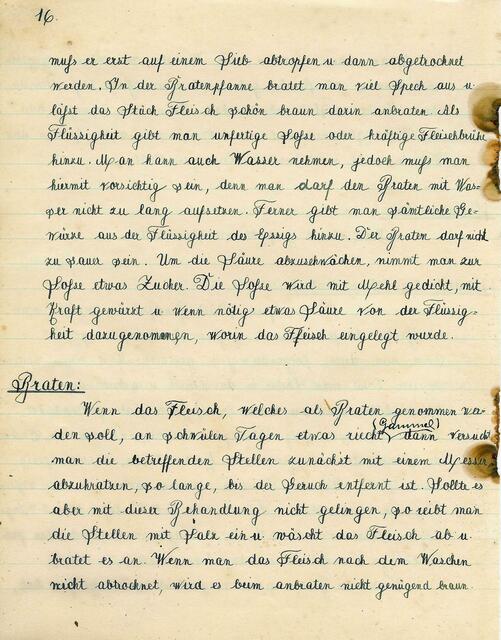 16.
muß er erst auf einem Sieb abtropfen u dann abgetrocknet
werden. In der Bratenpfanne bratet man viel Speck aus u.
läßt das Stück Fleisch schön braun darin anbraten. Als
Flüssigkeit gibt man unfertige Soße oder kräftige Fleischbrühe
hinzu. Man kann auch Wasser nehmen, jedoch muß man
hiermit vorsichtig sein, denn man darf den Braten mit Was-
ser nicht zu lang aufsetzen. Ferner gibt man sämtliche Ge-
würze aus der Flüssigkeit des Essigs hinzu. Der Braten darf nicht
zu sauer sein. Um die Säure abzuschwächen, nimmt man zur
Soße etwas Zucker. Die Soße wird mit Mehl gedickt, mit
Kraft gewürzt u wenn nötig etwas Säure von der Flüssig-
keit dazugenommen, worin das Fleisch eingelegt wurde.
Braten:
Wenn das Fleisch, welches als Braten genommen wer-
(Bammel)
den soll, an schwülen Tagen etwas riecht, dann versucht
man die betreffenden Stellen zunächst mit einem Messer
abzukratzen, so lange, bis der Geruch entfernt ist. Sollte es
aber mit dieser Behandlung nicht gelingen, so reibt man
die Stellen mit Salz ein u. wäscht das Fleisch ab u.
bratet es an. Wenn man das Fleisch nach dem Waschen
nicht abtrocknet, wird es beim anbraten nicht genügend braun.